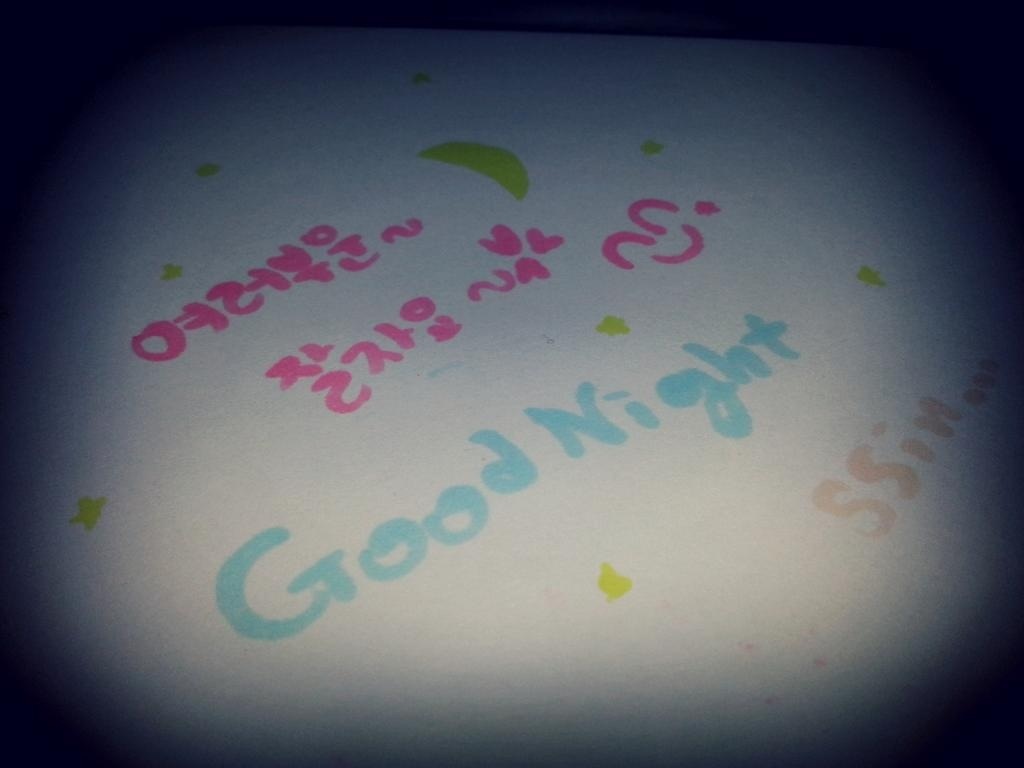 여러부운~
잘자요~
Good Night
SSin...